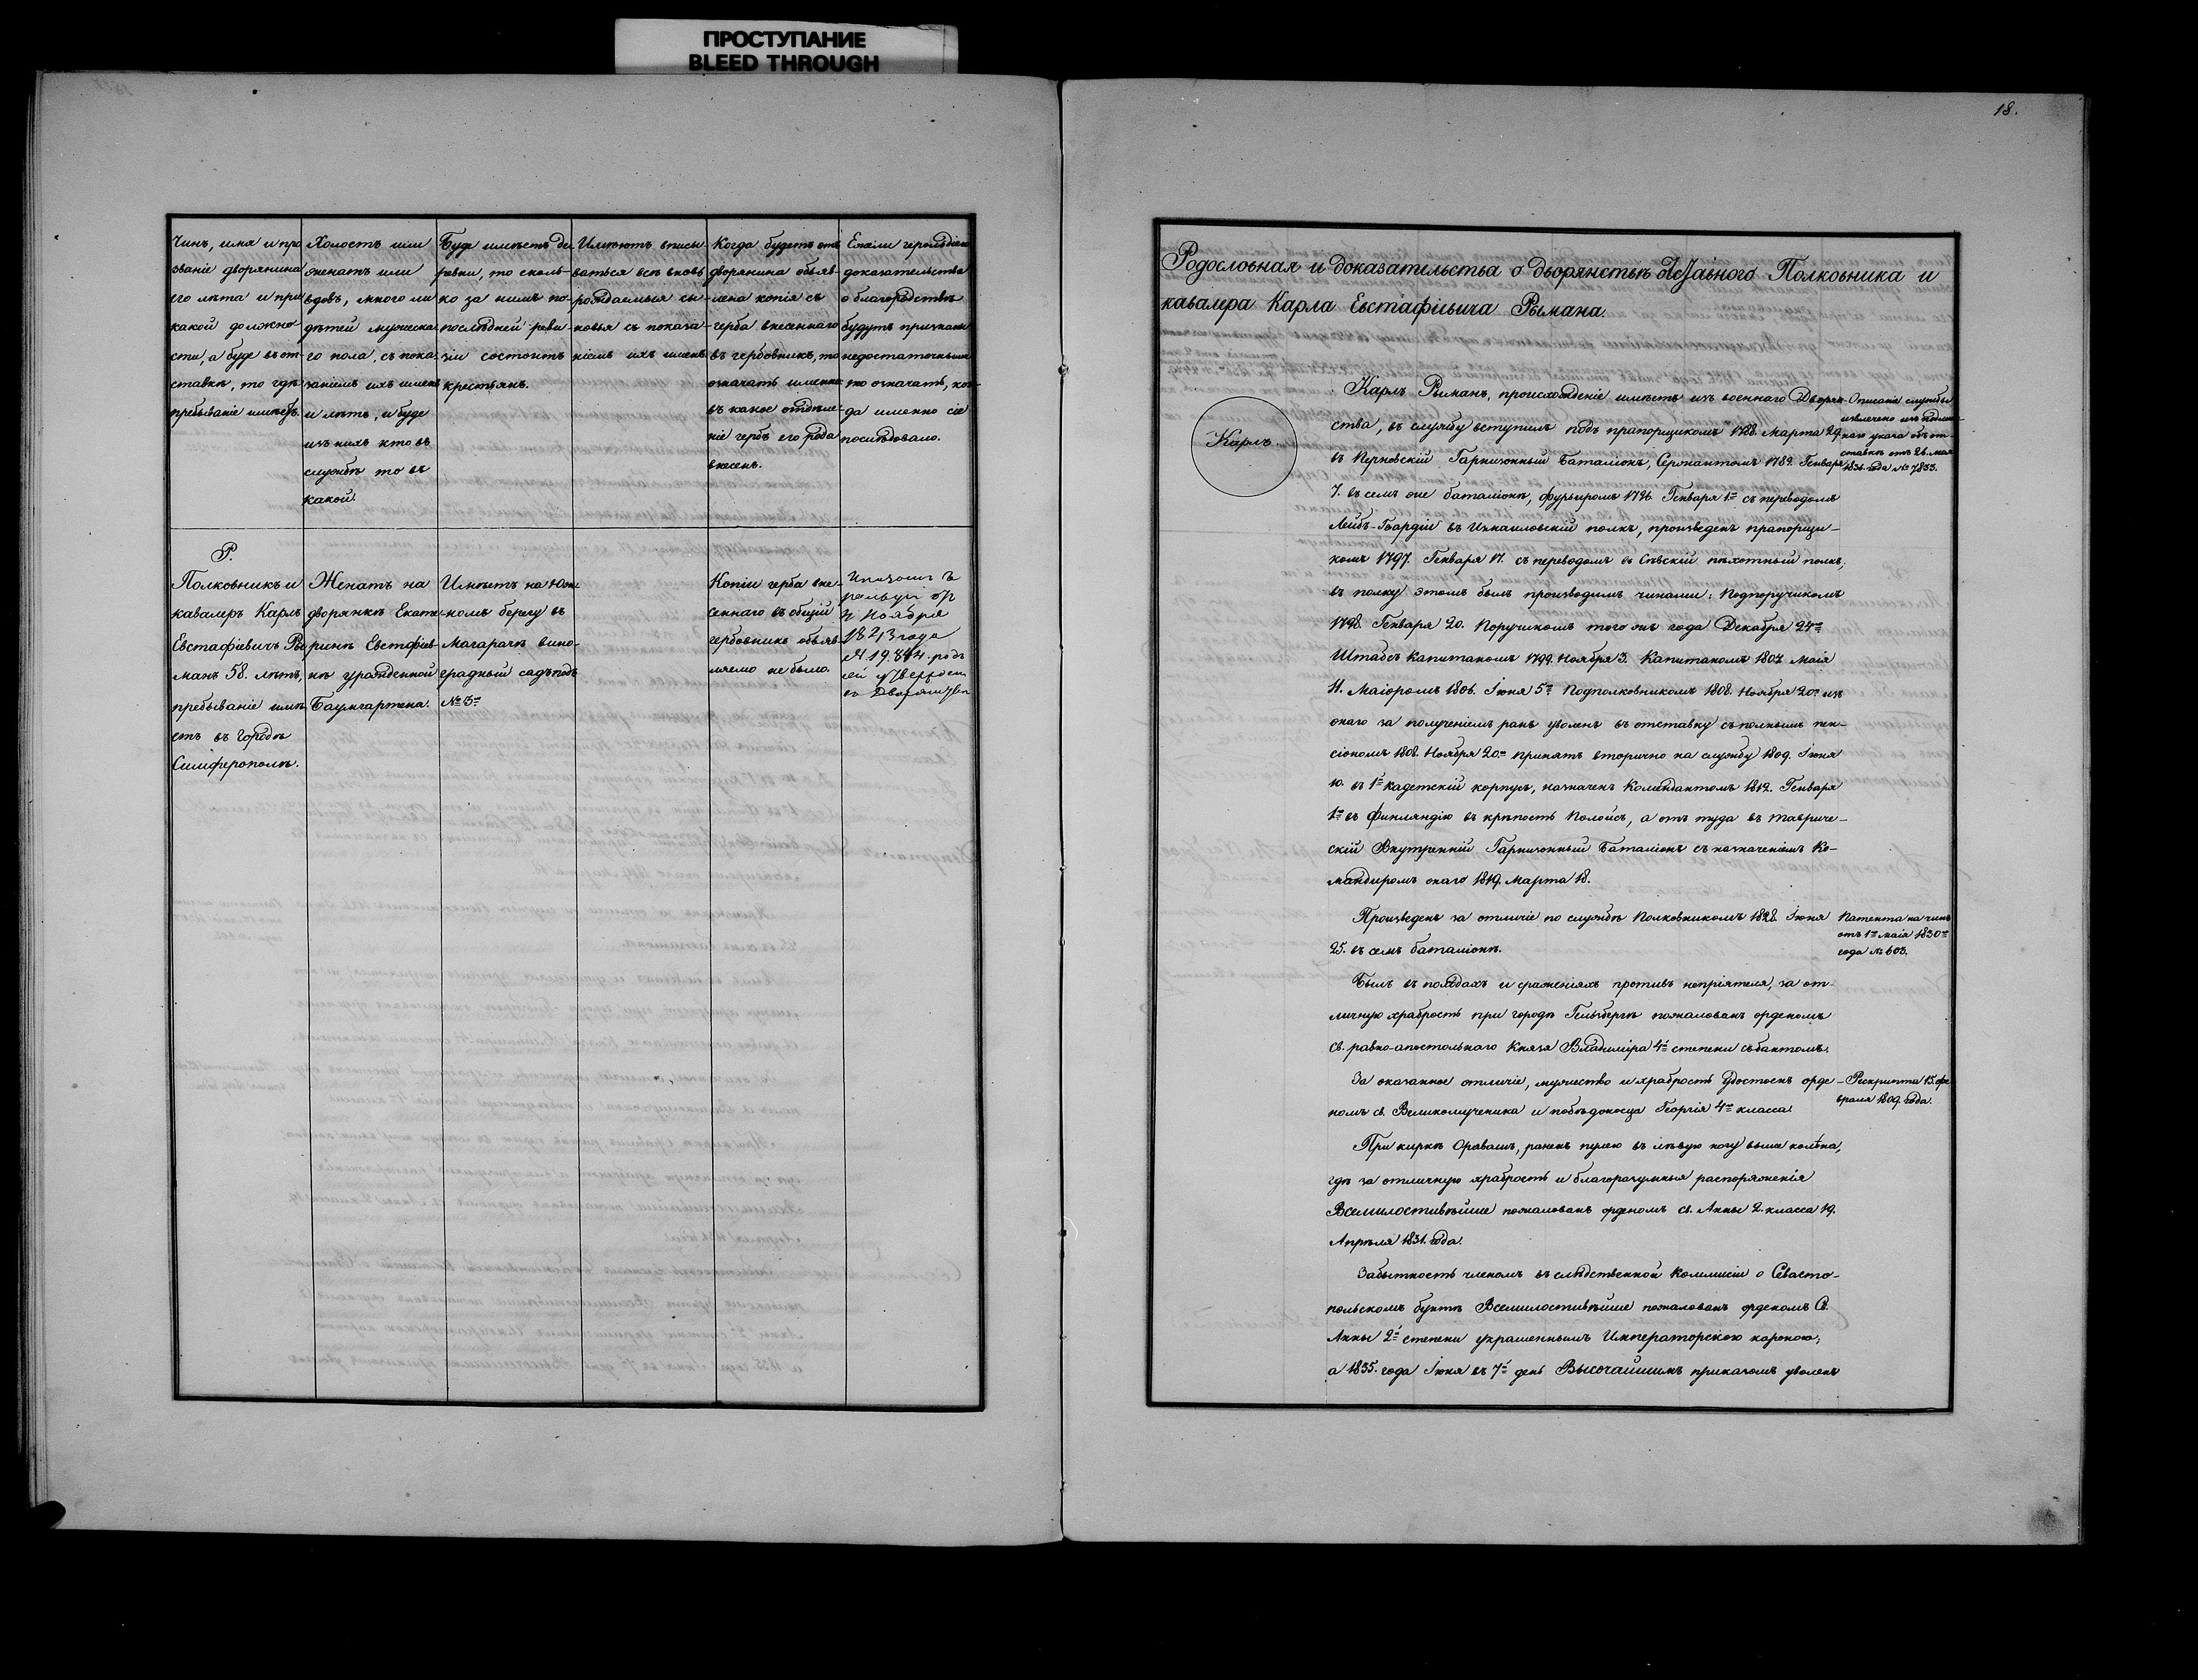 ПРОСТУПАНИЕ
BLEED THROUGH
18.
Чинъ, имя и про
званіе дворянина
его лѣта и при
какой должно-
сти, а буде въ от-
ставкѣ, то гдѣ
пребываніе имѣетъ.
Холостъ или
женатъ или
вдовъ, много ли
дѣтей мужеска-
го пола, съ пока-
заніемъ ихъ именъ
и лѣтъ, и буде
изъ нихъ кто въ
службѣ то въ
какой.
Буде имѣетъ де
ревни, то сколь-
ко за нимъ по-
послѣдней реви-
зіи состоитъ
крестьянъ.
Имѣютъ вписы-
ваться всѣ вновь
рождаемыя сы-
новья съ показа-
ніемъ ихъ именъ.
Когда будетъ отъ
дворянина объяв-
лена копія съ
герба внесеннаго
въ гербовникъ, то
означать именно
въ какое отдѣле-
ніе гербъ его рода
внесенъ.
Ежели герольдіею
доказательства
о благородствѣ
будутъ признаны
недостаточными
то означать, ког-
да именно сіе
послѣдовало.
Р.
Полковникъ и
кавалеръ Карлъ
Евстафіевичъ Ры
манъ 58. лѣтъ,
пребываніе имѣ
етъ въ городѣ
Симферополѣ.
Женатъ на
дворянкѣ Екате-
ринѣ Евстафіев-
нѣ урожденной
Баумгартена.
Имѣетъ на Юж-
номъ берегу въ
Магарачѣ вино-
градный садъ подъ
№ 3мъ
Копіи герба вне-
сеннаго въ общій
гербовникъ объяв-
ляемо не было.
Ноября
1843 года
Родословная и доказательства о дворянствѣ отставнаго Полковника и
кавалера Карла Евстафіевича Рымана.
Карлъ.
Карлъ Рыманъ, происхожденіе имѣетъ изъ военнаго Дворян-
ства, въ службу вступилъ подъ прапорщикомъ 1788. Марта 29.
въ Перновскій Гарнизонный Баталіонъ, Сержантомъ 1789. Генваря
7. въ семъ же баталіонѣ, фурьеромъ 1796 Генваря 1го съ переводомъ
Лейбъ-Гвардіи въ Измаиловскій полкъ, произведенъ прапорщи-
комъ 1797. Генваря 17. съ переводомъ въ Сѣвскій пѣхотный полкъ,
въ полку этомъ былъ производимъ чинами: Подпоручикомъ
1798. Генваря 20. Поручикомъ того же года Декабря 24го
Штабсъ Капитаномъ 1799. Ноября 3. Капитаномъ 1803 Маія
11. Маіоромъ 1806. Іюня 5го Подполковникомъ 1808. Ноября 20го изъ
онаго за полученіемъ ранъ уволенъ въ отставку съ полнымъ пен-
сіономъ 1808. Ноября 20го принятъ вторично на службу 1809. Іюня
10. въ 1й кадетскій корпусъ, назначенъ Комендантомъ 1812. Генваря
1го въ Финляндію въ крѣпость Колоисъ, а отъ туда въ Тавриче-
скій Внутренній Гарнизонный Баталіонъ съ назначеніемъ Ко-
мандиромъ онаго 1819. Марта 18.
Произведенъ за отличіе по службѣ Полковникомъ 1828. Іюня
25. въ семъ баталіонѣ.
Былъ въ походахъ и сраженіяхъ противъ непріятеля, за от-
личную храбрость при городѣ Гельзбергѣ пожалованъ орденомъ
Св. равно-апостольнаго Князя Владиміра 4й степени съ бантомъ.
За оказанное отличіе, мужество и храбрость удостоенъ орде-
номъ св. Великомученика и побѣдоносца Георгія 4го класса.
При киркѣ Оравашъ, раненъ пулею въ лѣвую ногу выше колѣна,
гдѣ за отличную храбрость и благоразумныя распоряженія
Всемилостивѣйше пожалованъ орденомъ св. Анны 2. класса 19.
Апрѣля 1831. года.
Забытность членомъ въ слѣдственной Коммисіи о Севасто-
польскомъ бунтѣ Всемилостивѣйше пожалованъ орденомъ Св.
Анны 2й степени украшеннымъ Императорскою короною,
а 1835. года Іюня въ 7й день Высочайшимъ приказомъ уволенъ
Описаніе службы
извлечено изъ подлин-
наго указа объ от-
ставкѣ отъ 26. мая
1836. года № 7833.
Патента на чинъ
отъ 1го маія 1830го
года № 603.
Рескрипта 15. фе
враля 1809. года.